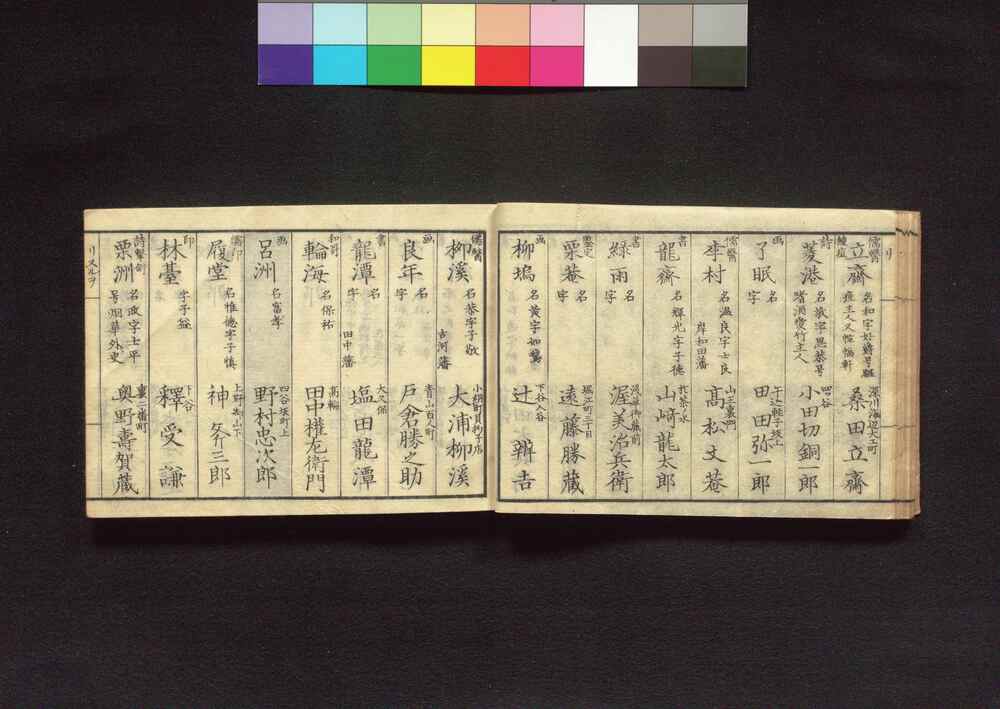 リ
儒醫 種痘 立齋 名和字好爵号 疽主人又 幅軒 深川海辺大工町 桑田立齋
詩 菱港 名敬字思恭号 皆漁愛竹主人 四谷 小田切銅一郎
画 了眠 名 字 牛込軽子坂上 田田弥一郎
儒醫 李村 名温良字士良 岸和田藩 山王裏門 髙松文菴
書 龍齋 名輝光字子徳 山﨑龍太郎
書 緑雨 名 字 浅草御藏前 渥美治兵衛
鑒定 栗菴 名 字 堀江町三丁目 遠藤勝藏
画 柳塢 名黄字如 下谷入谷 辻辨吉
儒醫 柳溪 名恭字子敬 古河藩 小網町貝杓子店 大浦柳溪
画 良年 名 字 青山百人町 戸倉勝之助
書 龍潭 名 字 田中藩 大久保 塩田龍潭
和哥 輪海 名保祐 髙輪 田中權左衛門
画 呂洲 名富孝 四谷坂町上 野村忠次郎
儒印 履堂 名惟徳字子慎 上野御山下 神斧三郎
印 林臺 字子益 下谷 釋受謙
詩 栗洲 名政字士平 号烟草外史 裏二番町 奥野壽賀藏
リヌルヲ